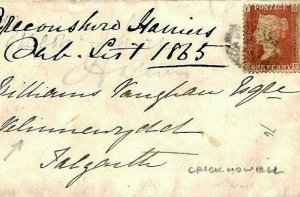 Breconshire Harriers
Sub. List 1865
POSTAGE
ONE PENNY
Williams Vaughan Esqre
Talgarth
CRICKHOWELL